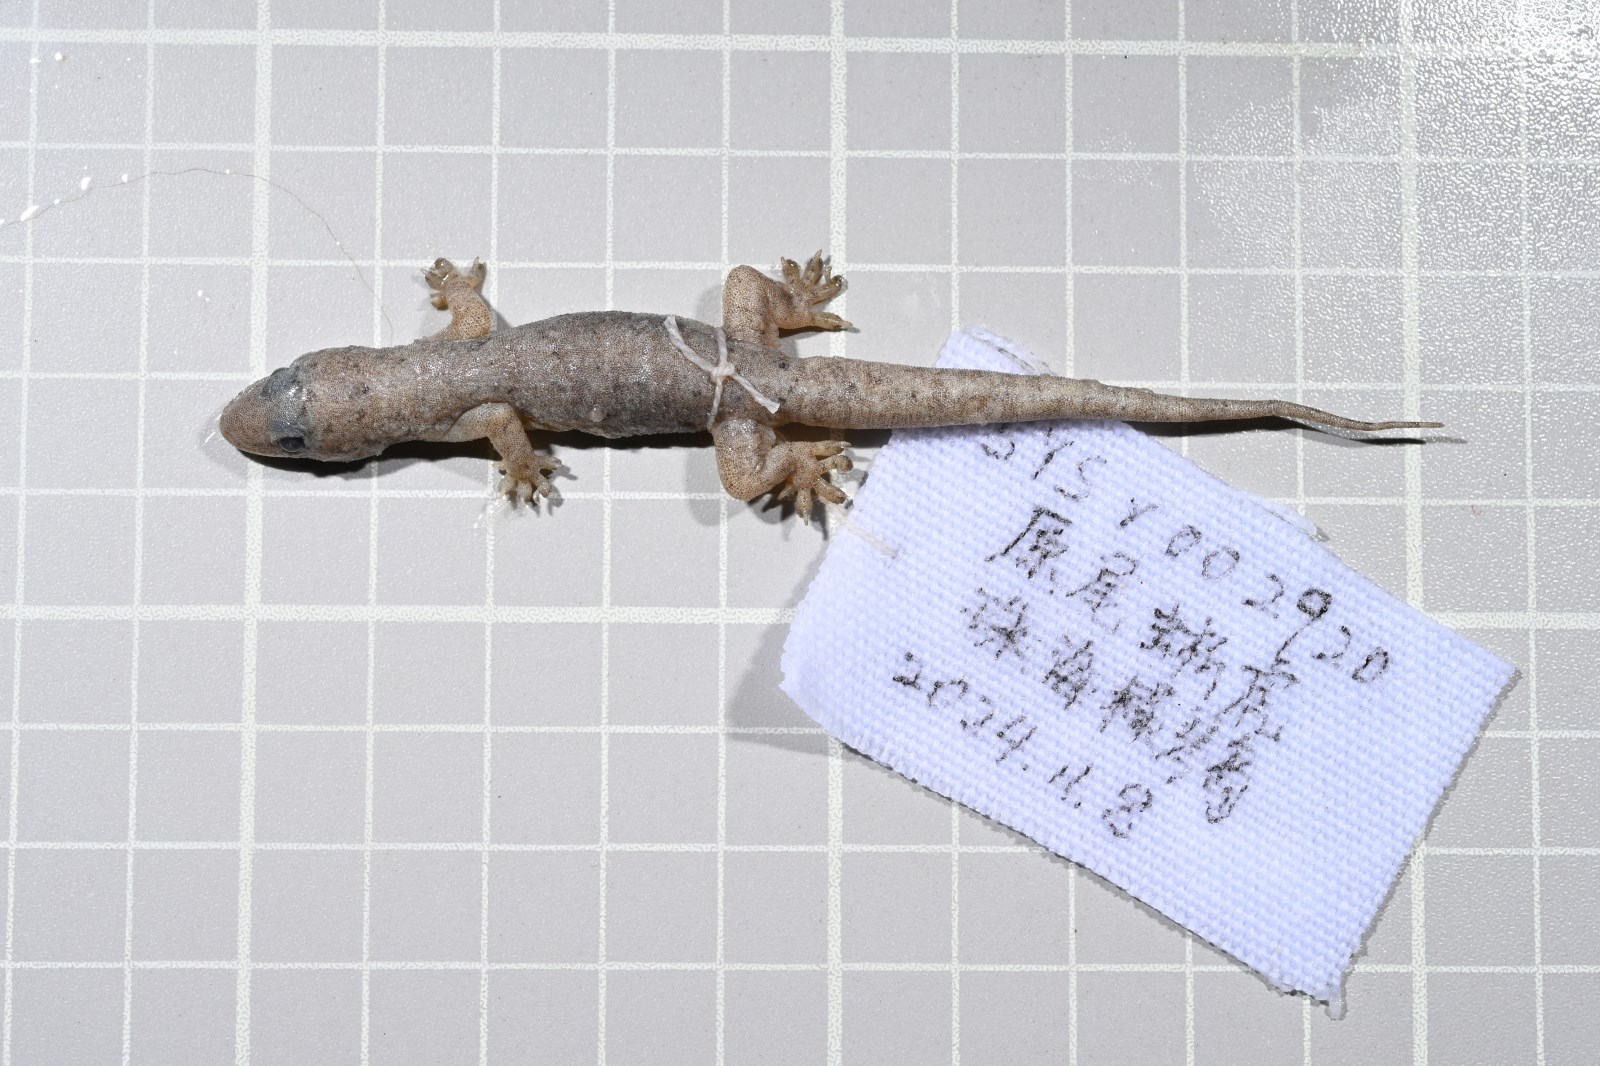 SYS r 002920
原尾蜥虎
珠海横琴
2024.11.8